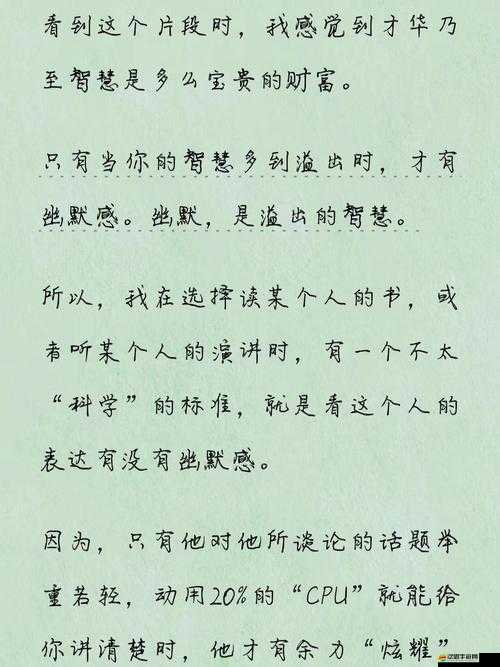 看到这个片段时，我感觉到才华乃
至智慧是多么宝贵的财富。
只有当你的智慧多到溢出时，才有
幽默感。幽默，是溢出的智慧。
所以，我在选择读某个人的书，或
者听某个人的演讲时，有一个不太
“科学”的标准，就是看这个人的
表达有没有幽默感。
因为，只有他对他所谈论的话题举
重若轻，动用20%的“CPU”就能给
你讲清楚时，他才有余力“炫耀”